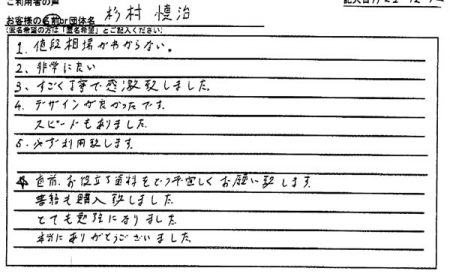 ご利用者の声
お客様の名前or団体名 杉村慎治
(匿名希望の方は「匿名希望」とご記入ください)
1. 値段相場がわからない。
2. 非常に良い
3. すごく丁寧で感激致しました。
4. デザインが良かったです。
スピードもありました
5. 必ず利用致します。
直前、お役立ち資料をどうぞ宜しくお願い致します
書籍も購入致しました
とても勉強になりました
本当にありがとうございました